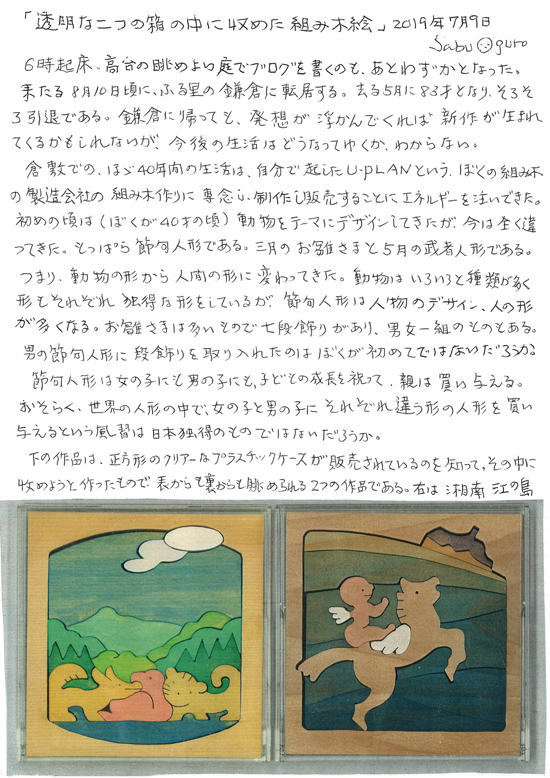 「透明な二つの箱の中に収めた組み木絵」2019年7月9日
Sabu Oguro
6時起床、高台の眺めよい庭でブログを書くのも、あとわずかとなった。
来たる8月10日頃に、ふる里の鎌倉に転居する。去る5月に83才となり、そろそ
ろ引退である。鎌倉に帰っても、発想が浮かんでくれば新作が生まれ
てくるかもしれないが、今後の生活はどうなってゆくか、わからない。
倉敷での、ほゞ40年間の生活は、自分で起したU-PLANという、ぼくの組み木
の製造会社の組み木作りに専念し、制作し販売することにエネルギーを注いできた。
初めの頃は(ぼくが40才の頃)動物をテーマにデザインしてきたが、今は全く違
ってきた。もっぱら節句人形である。三月のお雛さまと5月の武者人形である。
つまり、動物の形から人間の形に変わってきた。動物はいろいろと種類が多く
形もそれぞれ独得な形をしているが、節句人形は人物のデザイン、人の形
が多くなる。お雛さまは多いもので七段飾りがあり、男女一組のものもある。
男の節句人形に段飾りを取り入れたのはぼくが初めてではないだろうか。
節句人形は女の子にも男の子にも、子どもの成長を祝って、親は買い与える。
おそらく、世界の人形の中で、女の子と男の子にそれぞれ違う形の人形を買い
与えるという風習は日本独得のものではないだろうか。
下の作品は、正方形のクリアーなプラスチックケースが販売されているのを知って、その中に
収めようと作ったもので表からも裏からも眺められる2つの作品である。右は湘南江の島